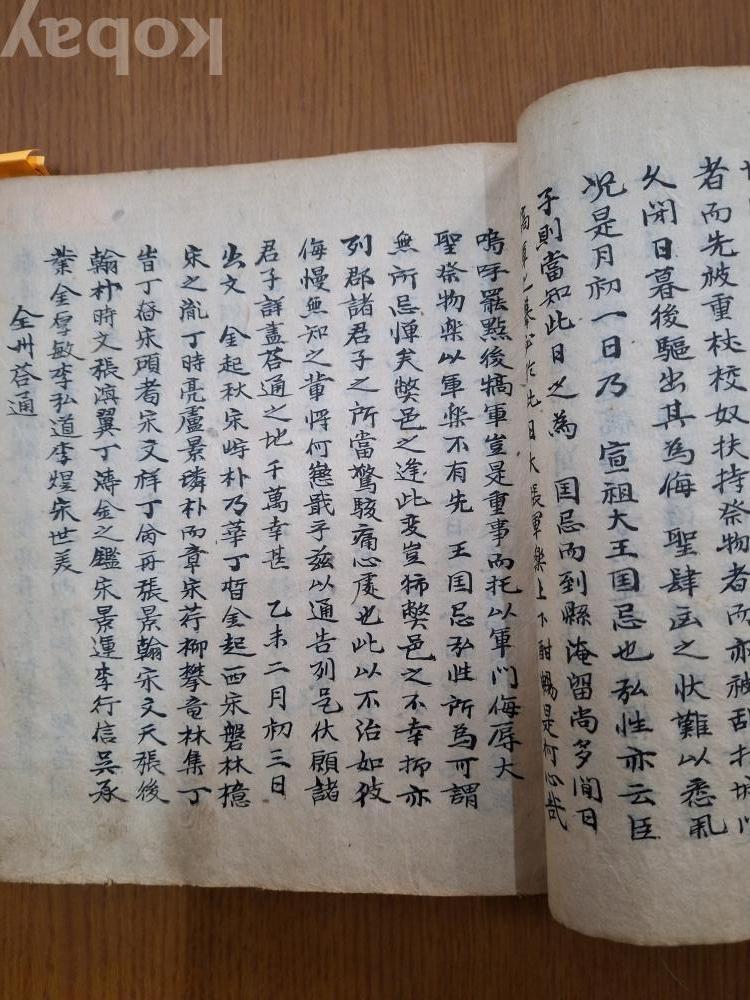 者而先被重杖校奴扶持祭物者而亦被乱打城
久閉日暮後驅出其為侮 聖肆凶之状難以悉乱
况是月初一日乃 宣祖大王国忌也弘性亦云臣
子則當知此日之為 国忌而到縣淹留尚多間日
犒軍之擧必於此日大張軍樂上下酣暢是何心哉
嗚呼罷點後犒軍豈是重事而托以軍門侮辱大
聖祭物樂以軍樂不有先 王国忌弘性所為可謂
無所忌憚矣弊邑之逢此変豈獨弊邑之不幸抑亦
列郡諸君子之所當驚駭痛心處也此以不治如彼
侮慢無知之輩将何懲戢乎玆以通告列邑伏願諸
君子詳盡答通之地千萬幸甚 乙未二月初三日
出文 金起秋宋時朴乃華丁晢金起西宋磐林檍
宋之胤丁時亮盧景璘朴而章宋荇柳攀竜林集丁
昔丁峇宋碩耈宋文祥丁侖再張景翰宋文天張後
翰朴時文張滇翼丁溥金之鑑宋景運李行信吳承
業金厚敏李弘道李煜宋世美
全州答通
kobay